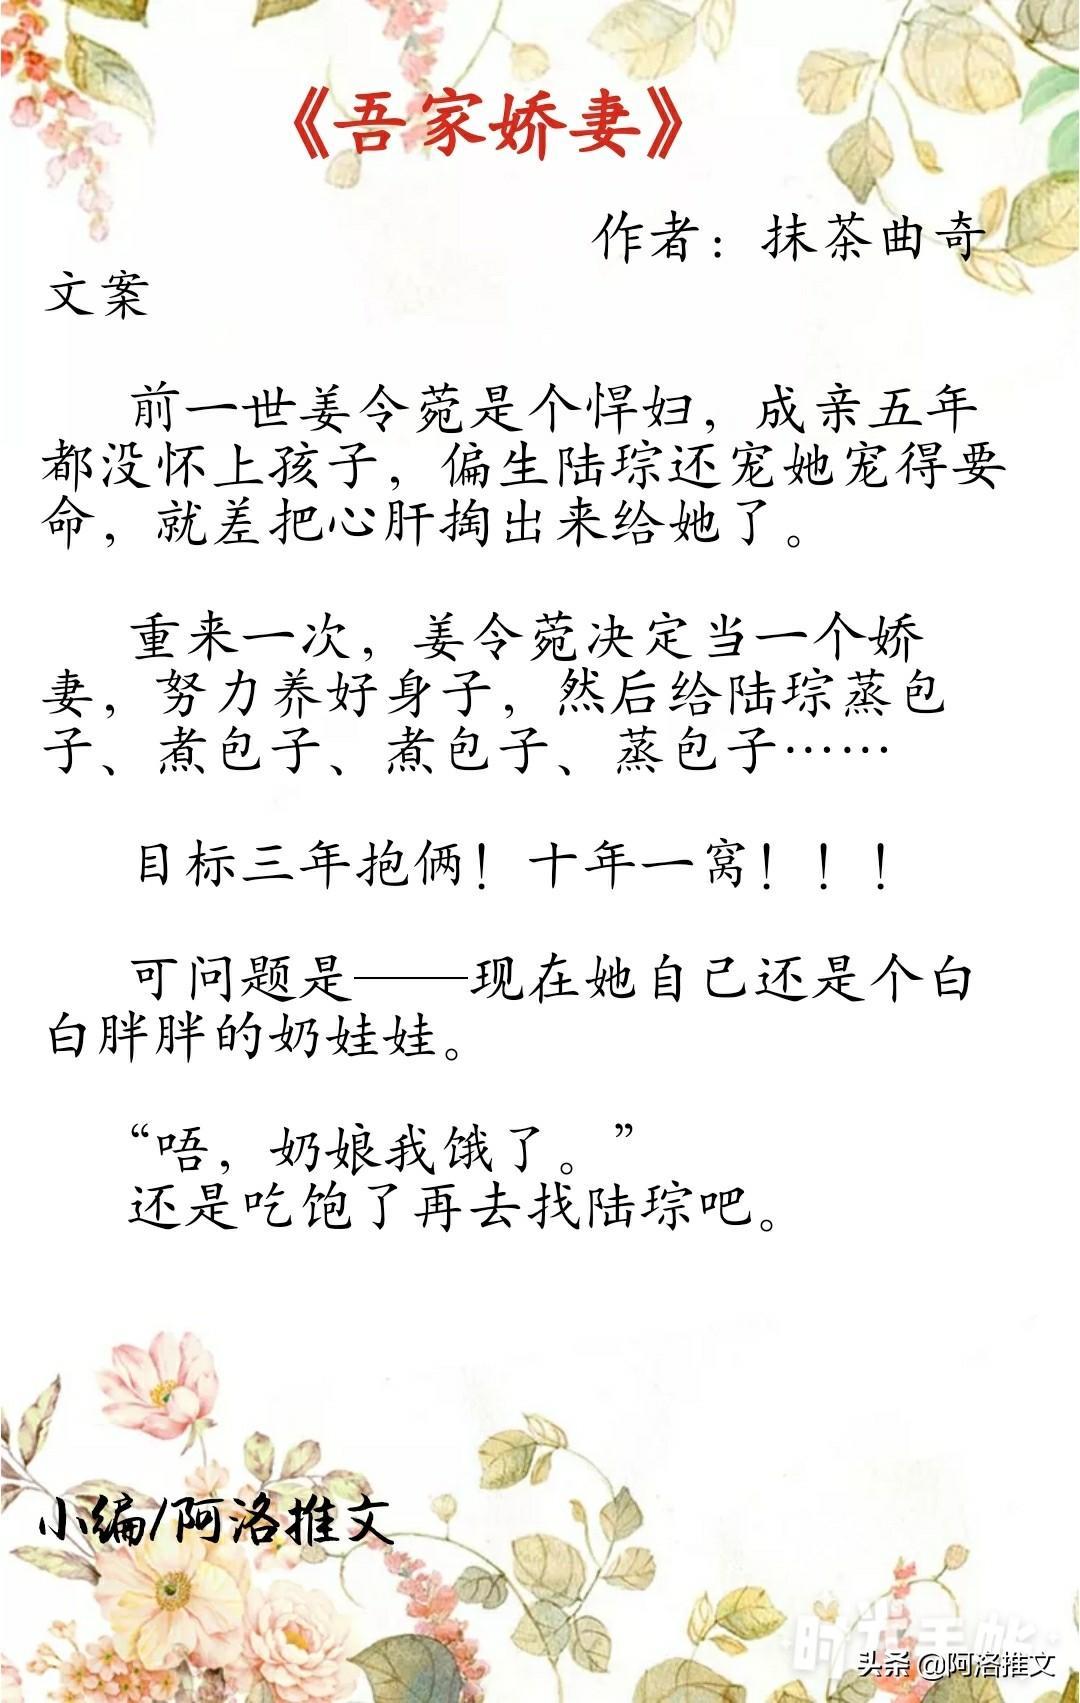 《吾家娇妻》
作者：抹茶曲奇
文案
前一世姜令菀是个悍妇，成亲五年
都没怀上孩子，偏生陆琮还宠她宠得要
命，就差把心肝掏出来给她了。
重来一次，姜令菀决定当一个娇
妻，努力养好身子，然后给陆琮蒸包
子、煮包子、煮包子、蒸包子……
目标三年抱俩！十年一窝！！！
可问题是——现在她自己还是个白
白胖胖的奶娃娃。
“唔，奶娘我饿了。”
还是吃饱了再去找陆琮吧。
小编/阿洛推文
时光手帐
头条 @阿洛推文